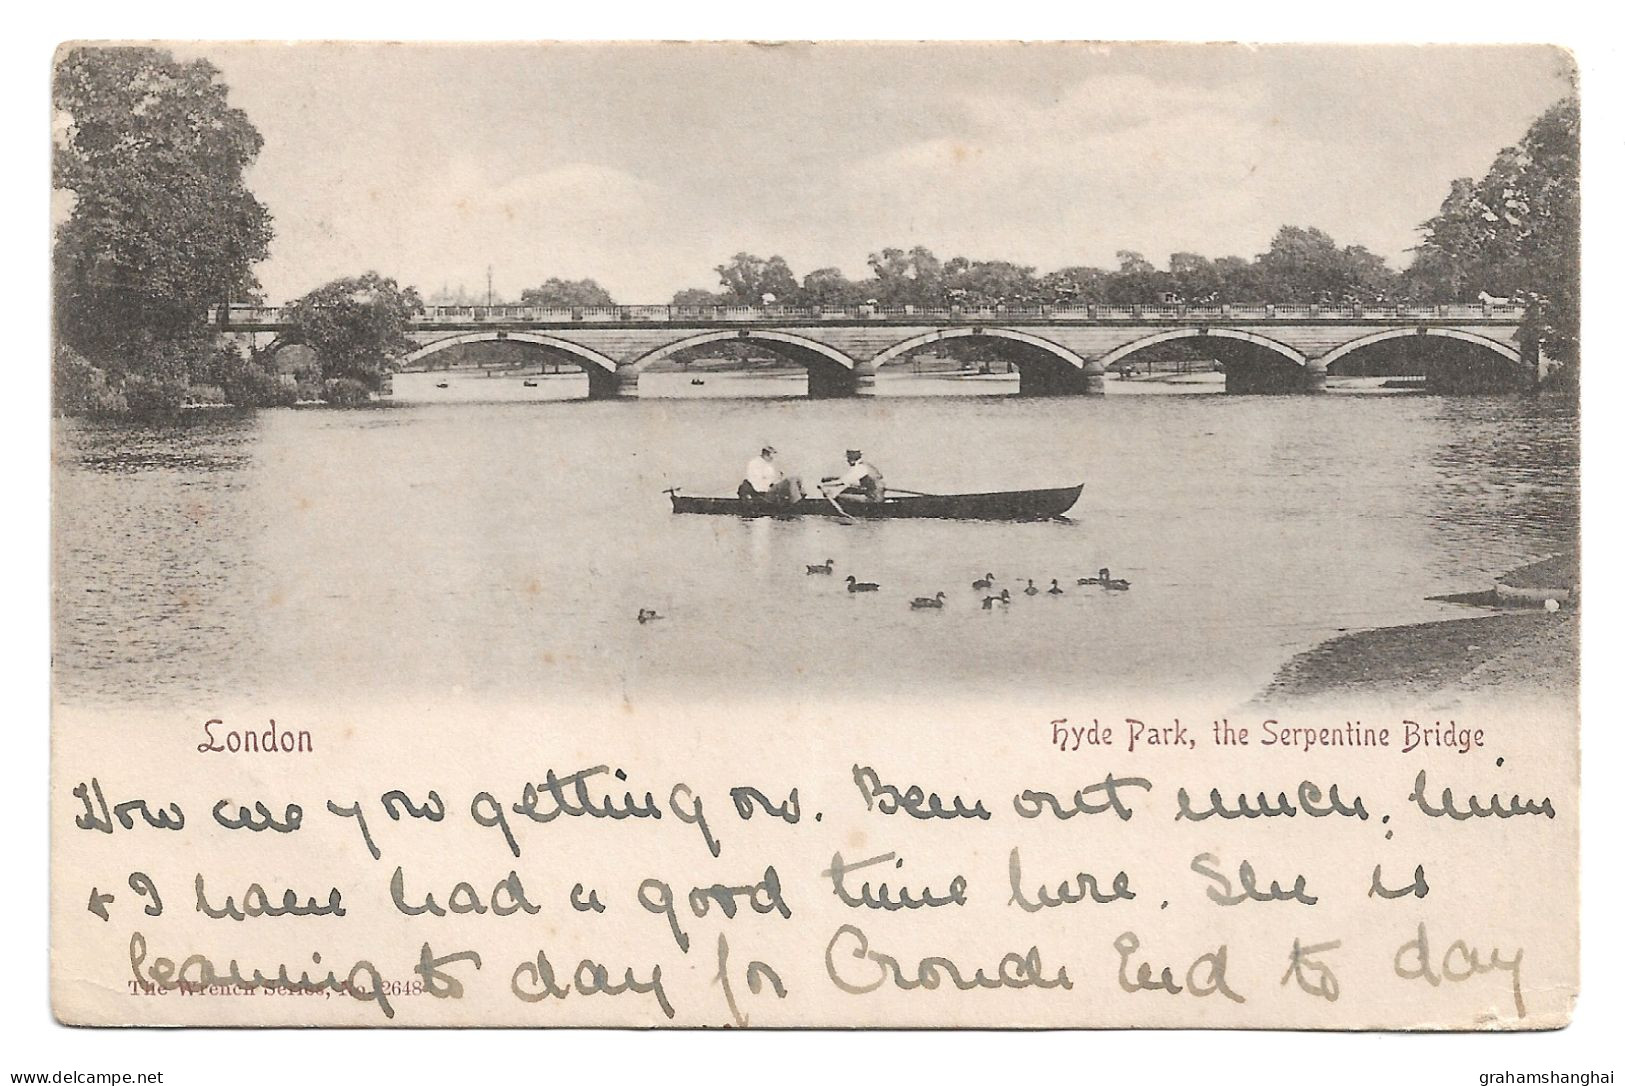 London
Hyde Park, the Serpentine Bridge
How are you getting on. Been out much,
& I have had a good time here. She is
leaving to day for Crouch End to day
The Wrench Series, No. 2648
delcampe.net
grahamshanghai